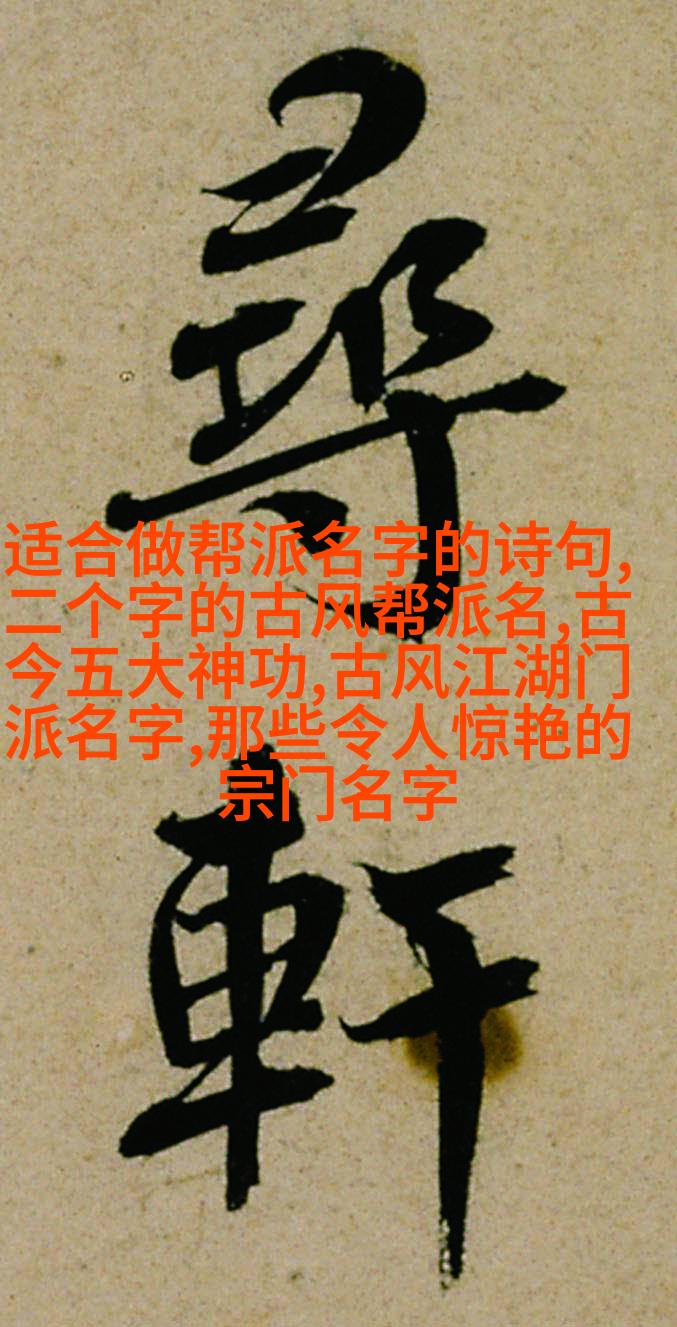 尋
適合做帮派名字的诗句,
二个字的古风帮派名,古
今五大神功,古风江湖门
派名字,那些令人惊艳的
宗门名字
軒